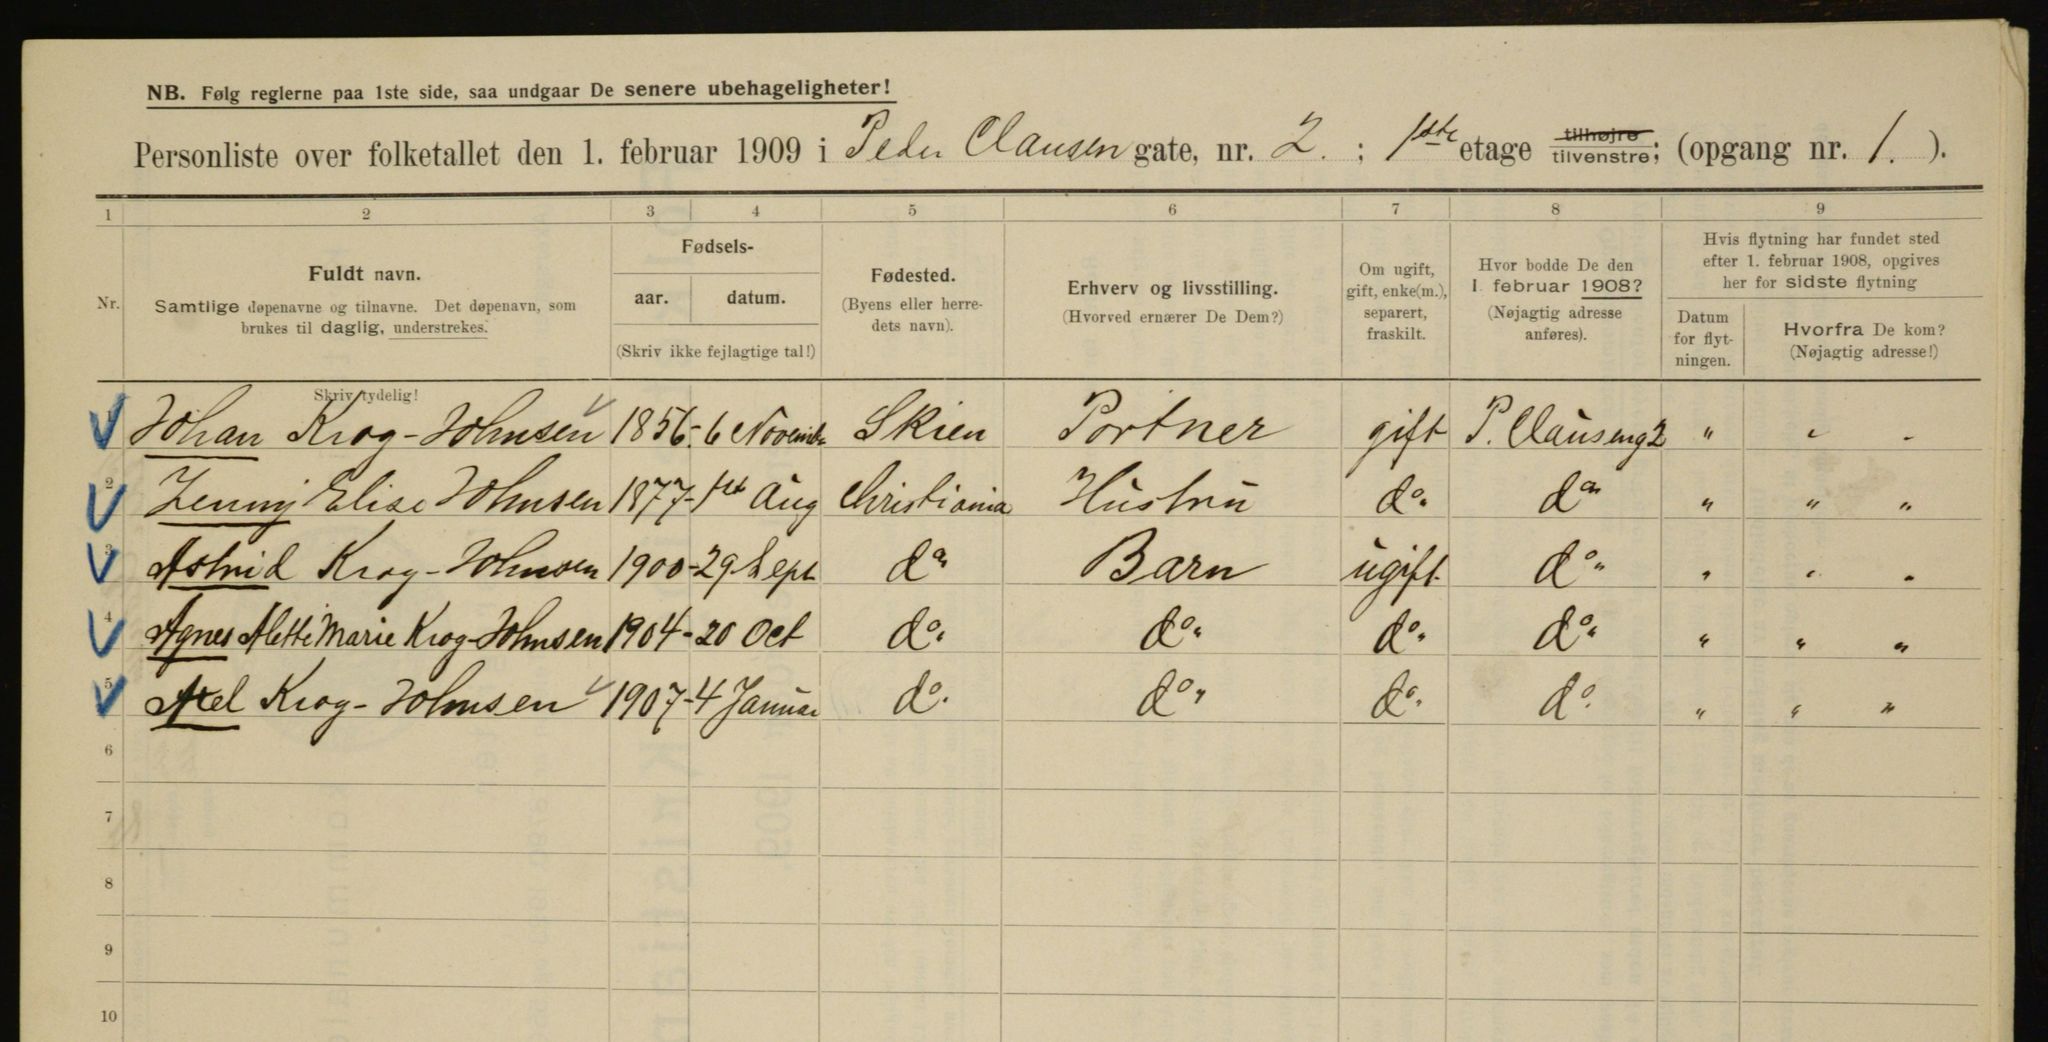 NB. Følg reglerne paa 1ste side, saa undgaar De senere ubehageligheter!
Personliste over folketallet den 1. februar 1909 i Peder Clausen gate, nr. 2. ; 1ste etage tilhøjre tilvenstre; (opgang nr. 1. ).
1 2 3 4 5 6 7 8 9
Nr. Fuldt navn. Samtlige døpenavne og tilnavne. Det døpenavn, som brukes til daglig, understrekes.
Skriv tydelig!
Fødsels-
aar. datum.
(Skriv ikke fejlagtige tal!)
Fødested.
(Byens eller herre-
dets navn).
Erhverv og livsstilling.
(Hvorved ernærer De Dem?)
Om ugift,
gift, enke(m.),
separert,
fraskilt.
Hvor bodde De den
1. februar 1908?
(Nøjagtig adresse
anføres).
Hvis flytning har fundet sted
efter 1. februar 1908, opgives
her for sidste flytning
Datum
for flyt-
ningen.
Hvorfra De kom?
(Nøjagtig adresse!)
1 Johan Krog-Johnsen 1856- 6 Novembr Skien Portner gift P. Clauseng 2 " " "
2 Jenny Elise Johnsen 1877- 1st Aug Christiania Hustru do. do " " "
3 Astrid Krog-Johnsen 1900- 29 Sept do Barn ugift do. " " "
4 Agnes Alette Marie Krog-Johnsen 1904- 20 Oct do. do. do. do. " " "
5 Axel Krog-Johnsen 1907- 4 Januar do. do. do. do. " " "
6
7
8
9
10